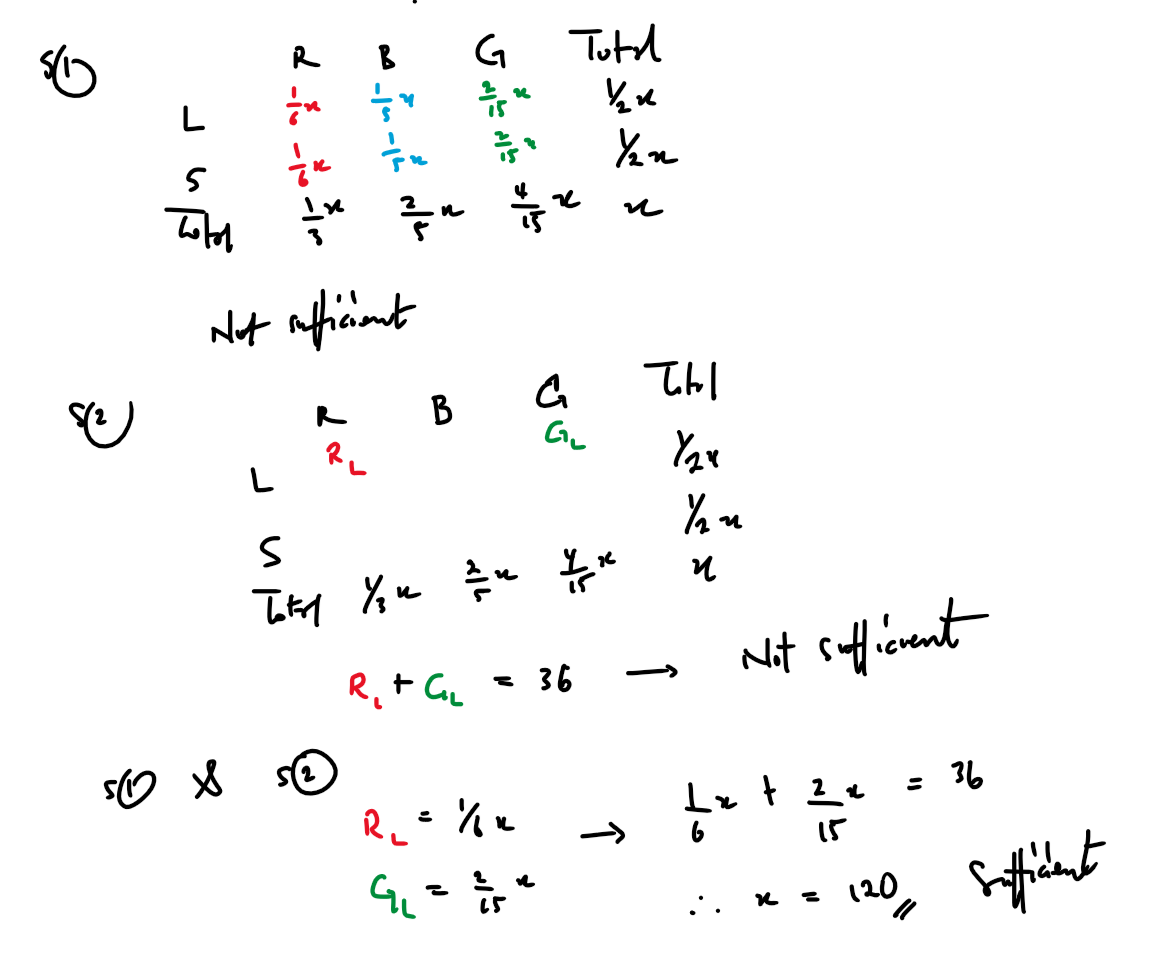 S①
R B G Total
L 1/6x 1/5x 2/15x 1/2x
S 1/6x 1/5x 2/15x 1/2x
Total 1/3x 2/5x 4/15x x
Not sufficient
S②
R B G Total
L R_L G_L 1/2x
S 1/2x
Total 1/3x 2/5x 4/15x x
R_L + G_L = 36 → Not sufficient
S① & S②
R_L = 1/6x → 1/6x + 2/15x = 36
G_L = 2/15x ∴ x = 120 Sufficient